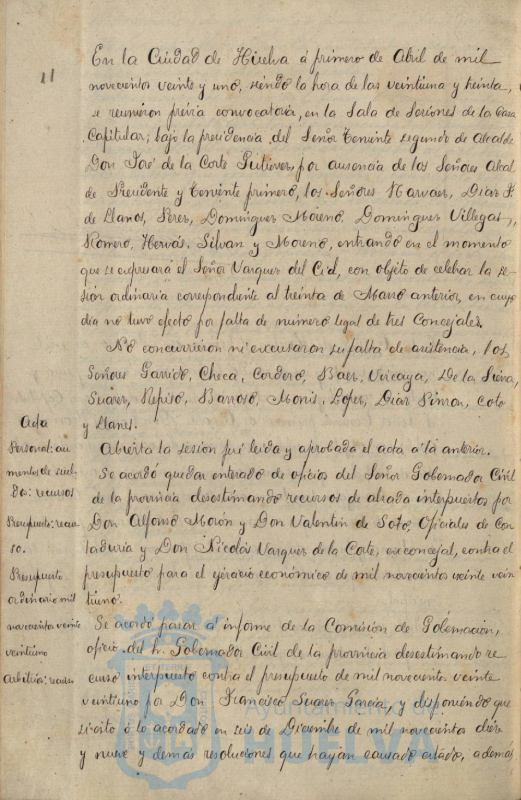 11
En la Ciudad de Huelva á primero de Abril de mil
novecientos veinte y uno, siendo la hora de las veintiuna y treinta,
se reunieron prévia convocatoria, en la Sala de Sesiones de la Casa
Capitular; bajo la presidencia del Señor Teniente segundo de Alcalde
Don José de la Corte Gutiérrez, por ausencia de los Señores Alcal
de Presidente y Teniente primero, los Señores Narvaez, Diaz F.
de Llanos, Perez, Dominguez Moreno, Dominguez Villegas,
Romero, Hervás, Silvan y Moreno, entrando en el momento
que se expresará el Señor Vazquez del Cid, con objeto de celebrar la se-
sión ordinaria correspondiente al treinta de Marzo anterior, en cuyo
día no tuvo efecto por falta de número legal de tres Concejales.
No concurrieron ni excusaron su falta de asistencia, los
Señores Garrido, Checa, Cordero, Baez, Vizcaya, De la Sierra,
Suarez, Repiso, Barroso, Monis, Lopez, Diaz Pinzon, Coto
y Llanes.
Acta
Abierta la sesión fué leida y aprobada el acta á la anterior.
Personal: au
mentos de suel-
dos: recursos
Se acordó quedar enterado de oficios del Señor Gobernador Civil
de la provincia desestimando recursos de alzada interpuestos por
Presupuesto: recur
so.
Don Alfonso Morón y Don Valentin de Soto, Oficiales de Con
taduría y Don Nicolás Vazquez de la Corte, exconcejal, contra el
Presupuesto
ordinario mil
novecientos veinte
veintiuno
presupuesto para el ejercicio económico de mil novecientos veinte vein
tiuno.
Se acordó pasar á informe de la Comisión de Gobernación,
oficio del Sr. Gobernador Civil de la provincia desestimando re
Arbitrios: recurso
curso interpuesto contra el presupuesto de mil novecientos veinte
veintiuno por Don Francisco Suarez García, y disponiendo que
sujeto á lo acordado en seis de Diciembre de mil novecientos diez
y nueve y demás resoluciones que hayan causado estado, además
Ayuntamiento de
HUELVA